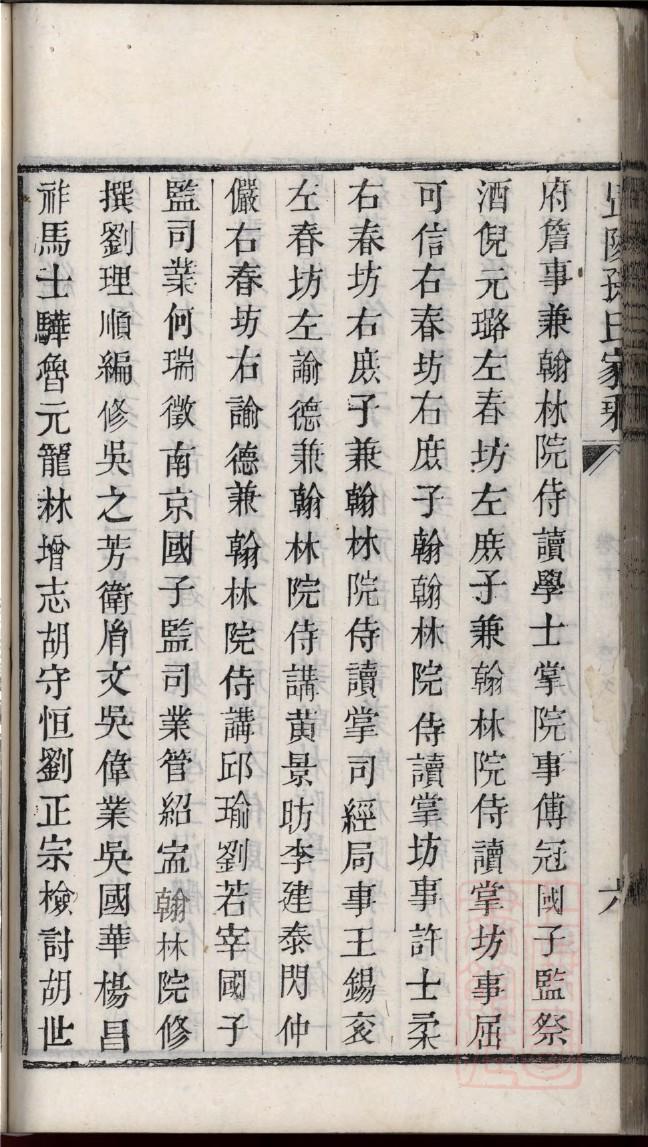 孫氏家乘
六
府詹事兼翰林院侍讀學士掌院事傅冠國子監祭
酒倪元璐左春坊左庶子兼翰林院侍讀掌坊事屈
可信右春坊右庶子翰翰林院侍讀掌坊事許士柔
右春坊右庶子兼翰林院侍讀掌司經局事王錫袞
左春坊左諭德兼翰林院侍講黃景昉李建泰閃仲
儼右春坊右諭德兼翰林院侍講邱瑜劉若宰國子
監司業何瑞徵南京國子監司業管紹寍翰林院修
撰劉理順編修吳之芳衛胤文吳偉業吳國華楊昌
祚馬士驊魯元寵林增志胡守恒劉正宗檢討胡世